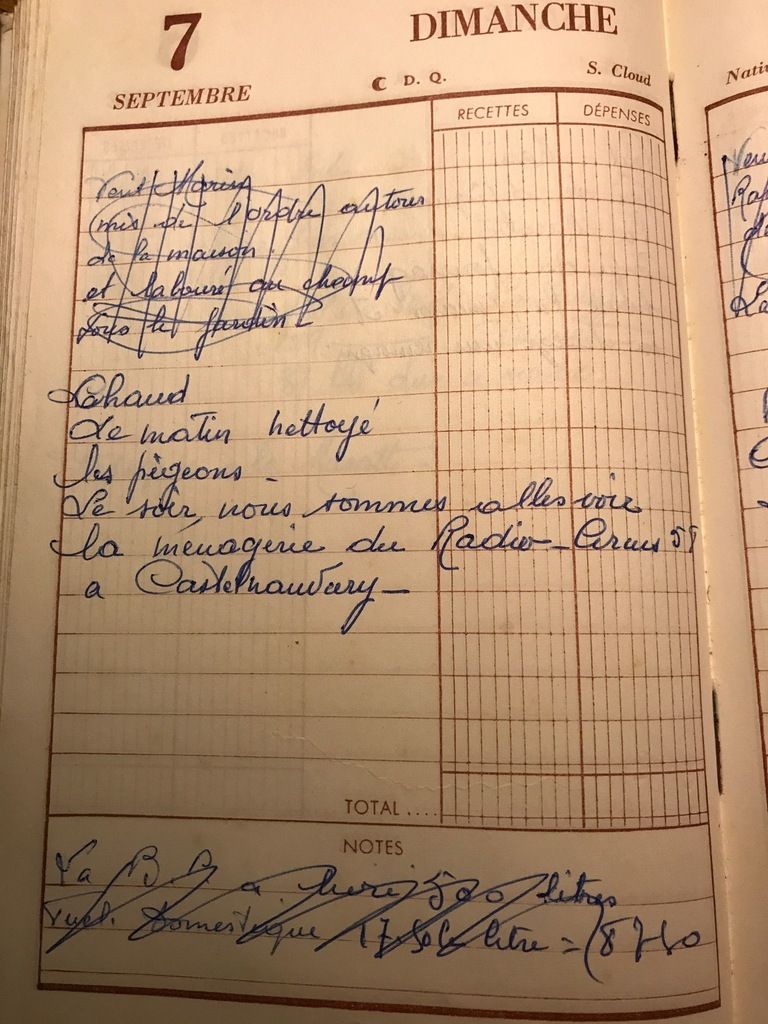 7
DIMANCHE
SEPTEMBRE
D. Q.
S. Cloud
RECETTES
DÉPENSES
Vent Marin
mis de l'ordre autour
de la maison
et labouré au champ
sous le jardin
Chaud
Le matin nettoyé
les pigeons -
Le soir, nous sommes alles voir
la ménagerie du Radio-Circus 59
a Castelnaudary -
TOTAL ....
NOTES
La B.P a livré 500 litres
Fuel Domestique le litre = 8740
Nati